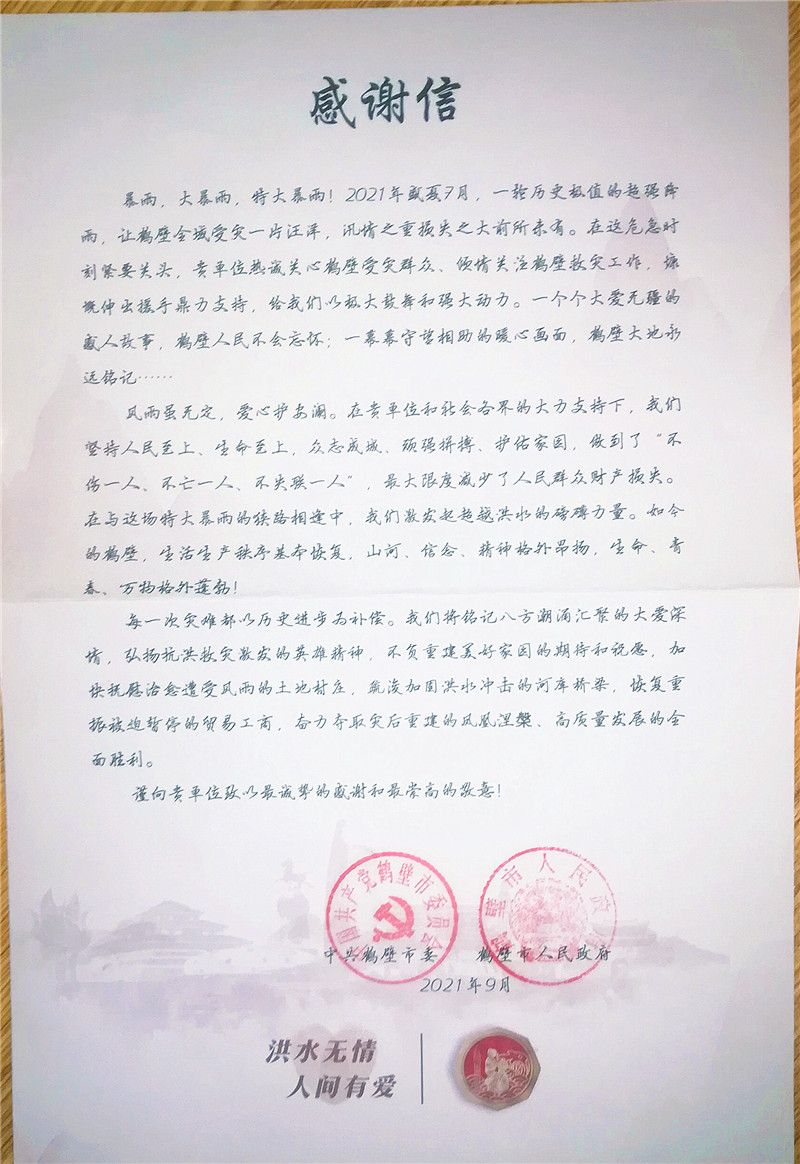 感谢信
暴雨，大暴雨，特大暴雨！2021年盛夏7月，一轮历史极值的超强降
雨，让鹤壁全域受灾一片汪洋，汛情之重损失之大前所未有。在这危急时
刻紧要关头，贵单位热诚关心鹤壁受灾群众、倾情关注鹤壁救灾工作，慷
慨伸出援手鼎力支持，给我们以极大鼓舞和强大动力。一个个大爱无疆的
感人故事，鹤壁人民不会忘怀；一幕幕守望相助的暖心画面，鹤壁大地永
远铭记……
风雨虽无定，爱心护安澜。在贵单位和社会各界的大力支持下，我们
坚持人民至上、生命至上，众志成城、顽强拼搏、护佑家园，做到了“不
伤一人、不亡一人、不失联一人”，最大限度减少了人民群众财产损失。
在与这场特大暴雨的狭路相逢中，我们激发起超越洪水的磅礴力量。如今
的鹤壁，生活生产秩序基本恢复，山河、信念、精神格外昂扬，生命、青
春、万物格外蓬勃！
每一次灾难都以历史进步为补偿。我们将铭记八方潮涌汇聚的大爱深
情，弘扬抗洪救灾激发的英雄精神，不负重建美好家园的期待和祝愿，加
快抚慰治愈遭受风雨的土地村庄，疏浚加固洪水冲击的河库桥梁，恢复重
振被迫暂停的贸易工商，奋力夺取灾后重建的凤凰涅槃、高质量发展的全
面胜利。
谨向贵单位致以最诚挚的感谢和最崇高的敬意！
中国共产党鹤壁市委员会
鹤壁市人民政府
中共鹤壁市委 鹤壁市人民政府
2021年9月
洪水无情
人间有爱